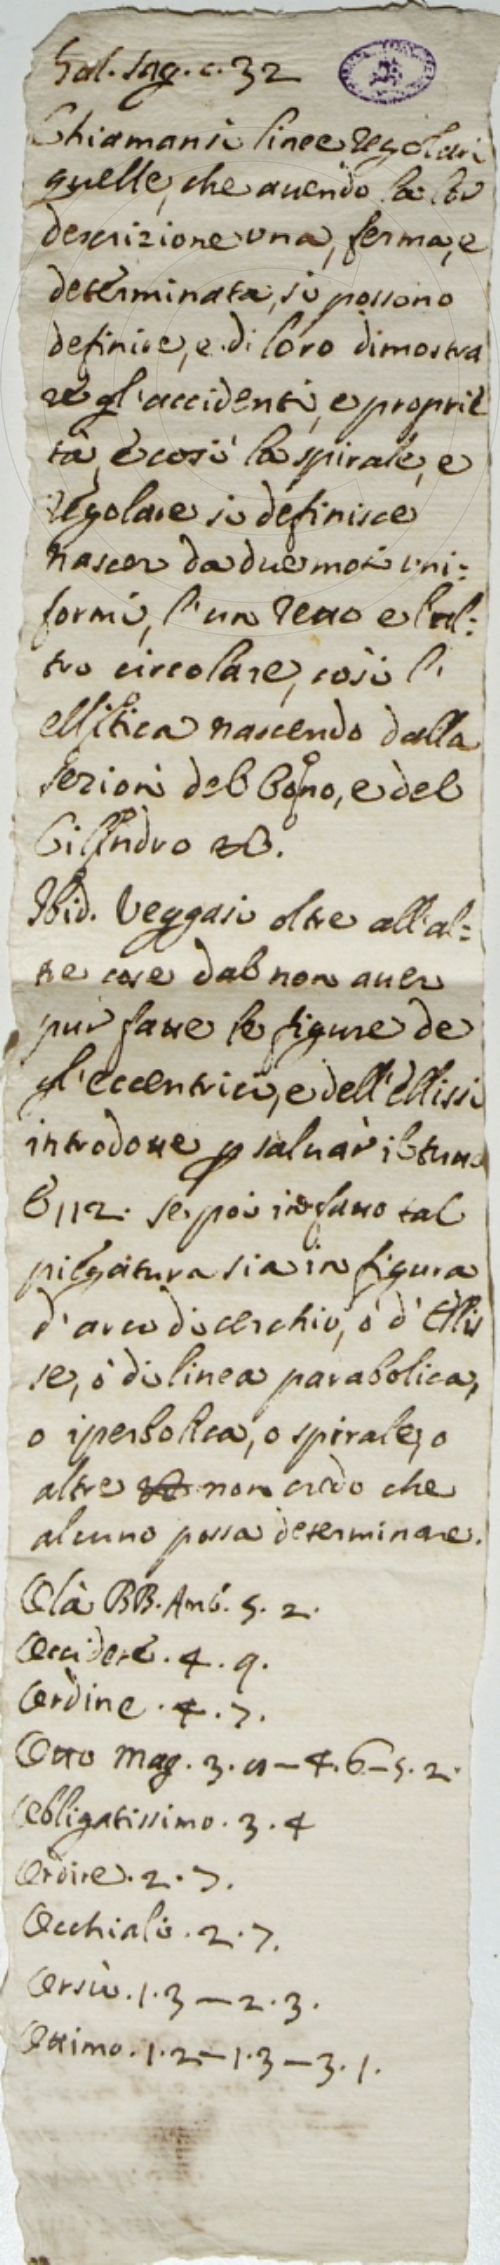 Gal. Sag. c. 32
Chiamansi linee regolari
quelle, che avendo la lor
descrizione una, ferma, e
determinata, si possono
definire, e di loro dimostra
re gl'accidenti, e proprie
tà, e così la spirale, e
regolare si definisce
nascer da due moti uni=
formi, l'un retto e l'al=
tro circolare, così l'
ellitica nascendo dalla
sezion del Cono, e del
Cilindro &.
Ibid. Veggasi oltre all'al=
tre cose dal non aver
pur fatte le figure de
gl'eccentrici, e dell'Ellissi
introdotte p salvar il tutto
E 112. se poi in fatto tal
piegatura sia in figura
d'arco di cerchio, ò d'Ellis
se, ò di linea parabolica,
o iperbolica, o spirale, o
altre non credo che
alcuno possa determinare.
Olà BB. Amb. 5. 2.
Occidere. 4. 9.
Ordine. 4. 7.
Otto Mag. 3. 11 – 4. 6 – 5. 2.
Obbligatissimo. 3. 4
Ordire. 2. 7.
Occhiali. 2. 7.
Orsù. 1. 3 – 2. 3.
Ottimo. 1. 2 – 1. 3 – 3. 1.